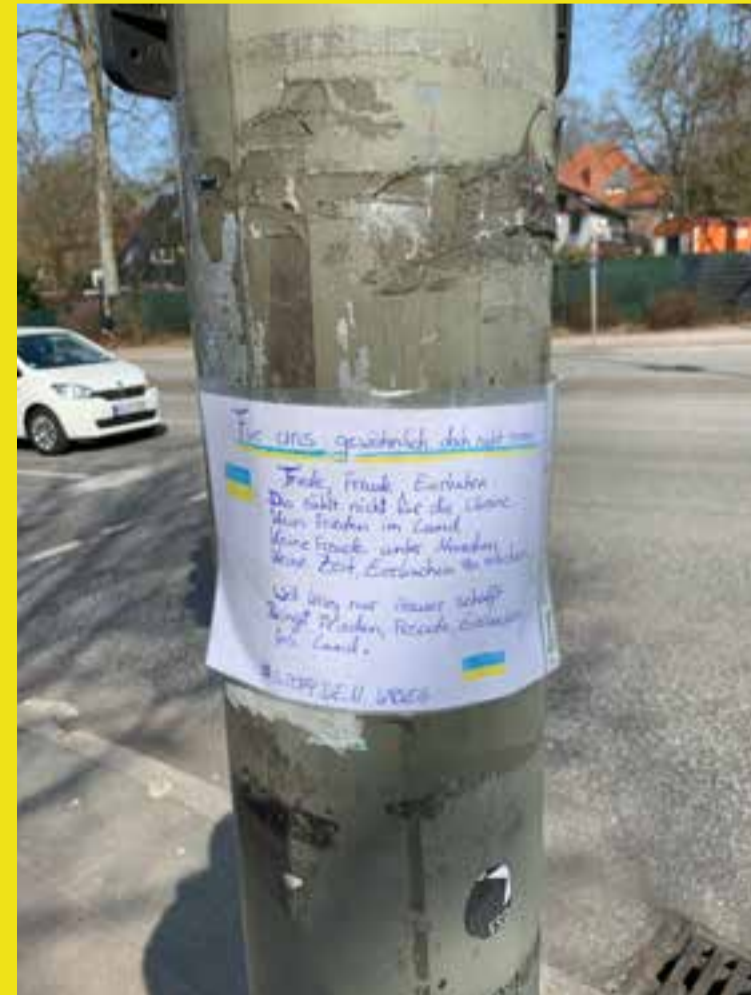 Für uns gewöhnlich, doch nicht
Friede, Freude, Eierkuchen
Das nicht für die Ukraine
Kein Frieden im Land
Keine Freude unter Menschen
Keine Zeit, Eierkuchen zu
Weil Krieg nur Trauer schafft
Bringt Frieden, Freude, Eierkuchen
ins Land.
#STOPPDENKRIEG